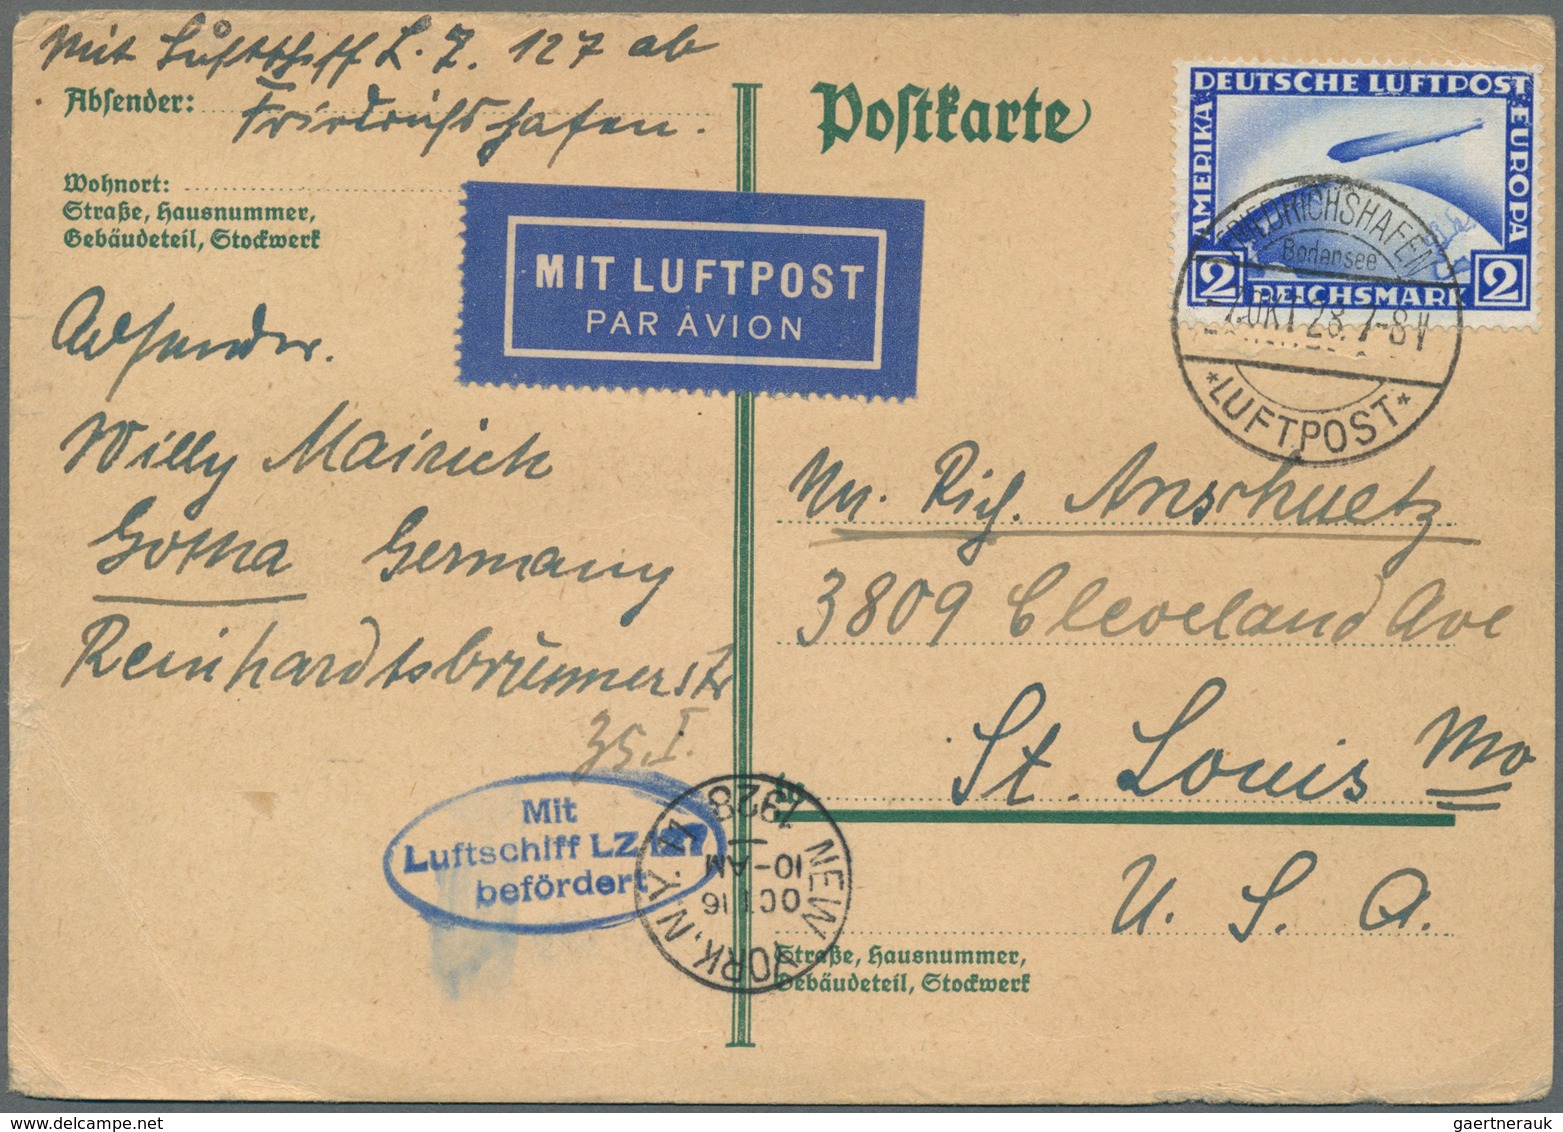 Mit Luftschiff L. Z. 127 ab
Friedrichshafen.
Absender:
Wohnort:
Straße, Hausnummer,
Gebäudeteil, Stockwerk
Postkarte
DEUTSCHE LUFTPOST
AMERIKA
EUROPA
2 REICHSMARK 2
FRIEDRICHSHAFEN
Bodensee
7.OKT 28. 7-8V
*LUFTPOST*
MIT LUFTPOST
PAR AVION
Absender.
Willy Mairich
Gotha Germany
Reinhardtsbrunnerstr
35.I.
Rich. Anschuetz
3809 Cleveland Ave
St. Louis Mo
U. S. A.
Mit
Luftschiff LZ 127
befördert
NEW YORK, N.Y. 11
OCT 16
10-AM
1928
Straße, Hausnummer,
Gebäudeteil, Stockwerk
gaertnerauk